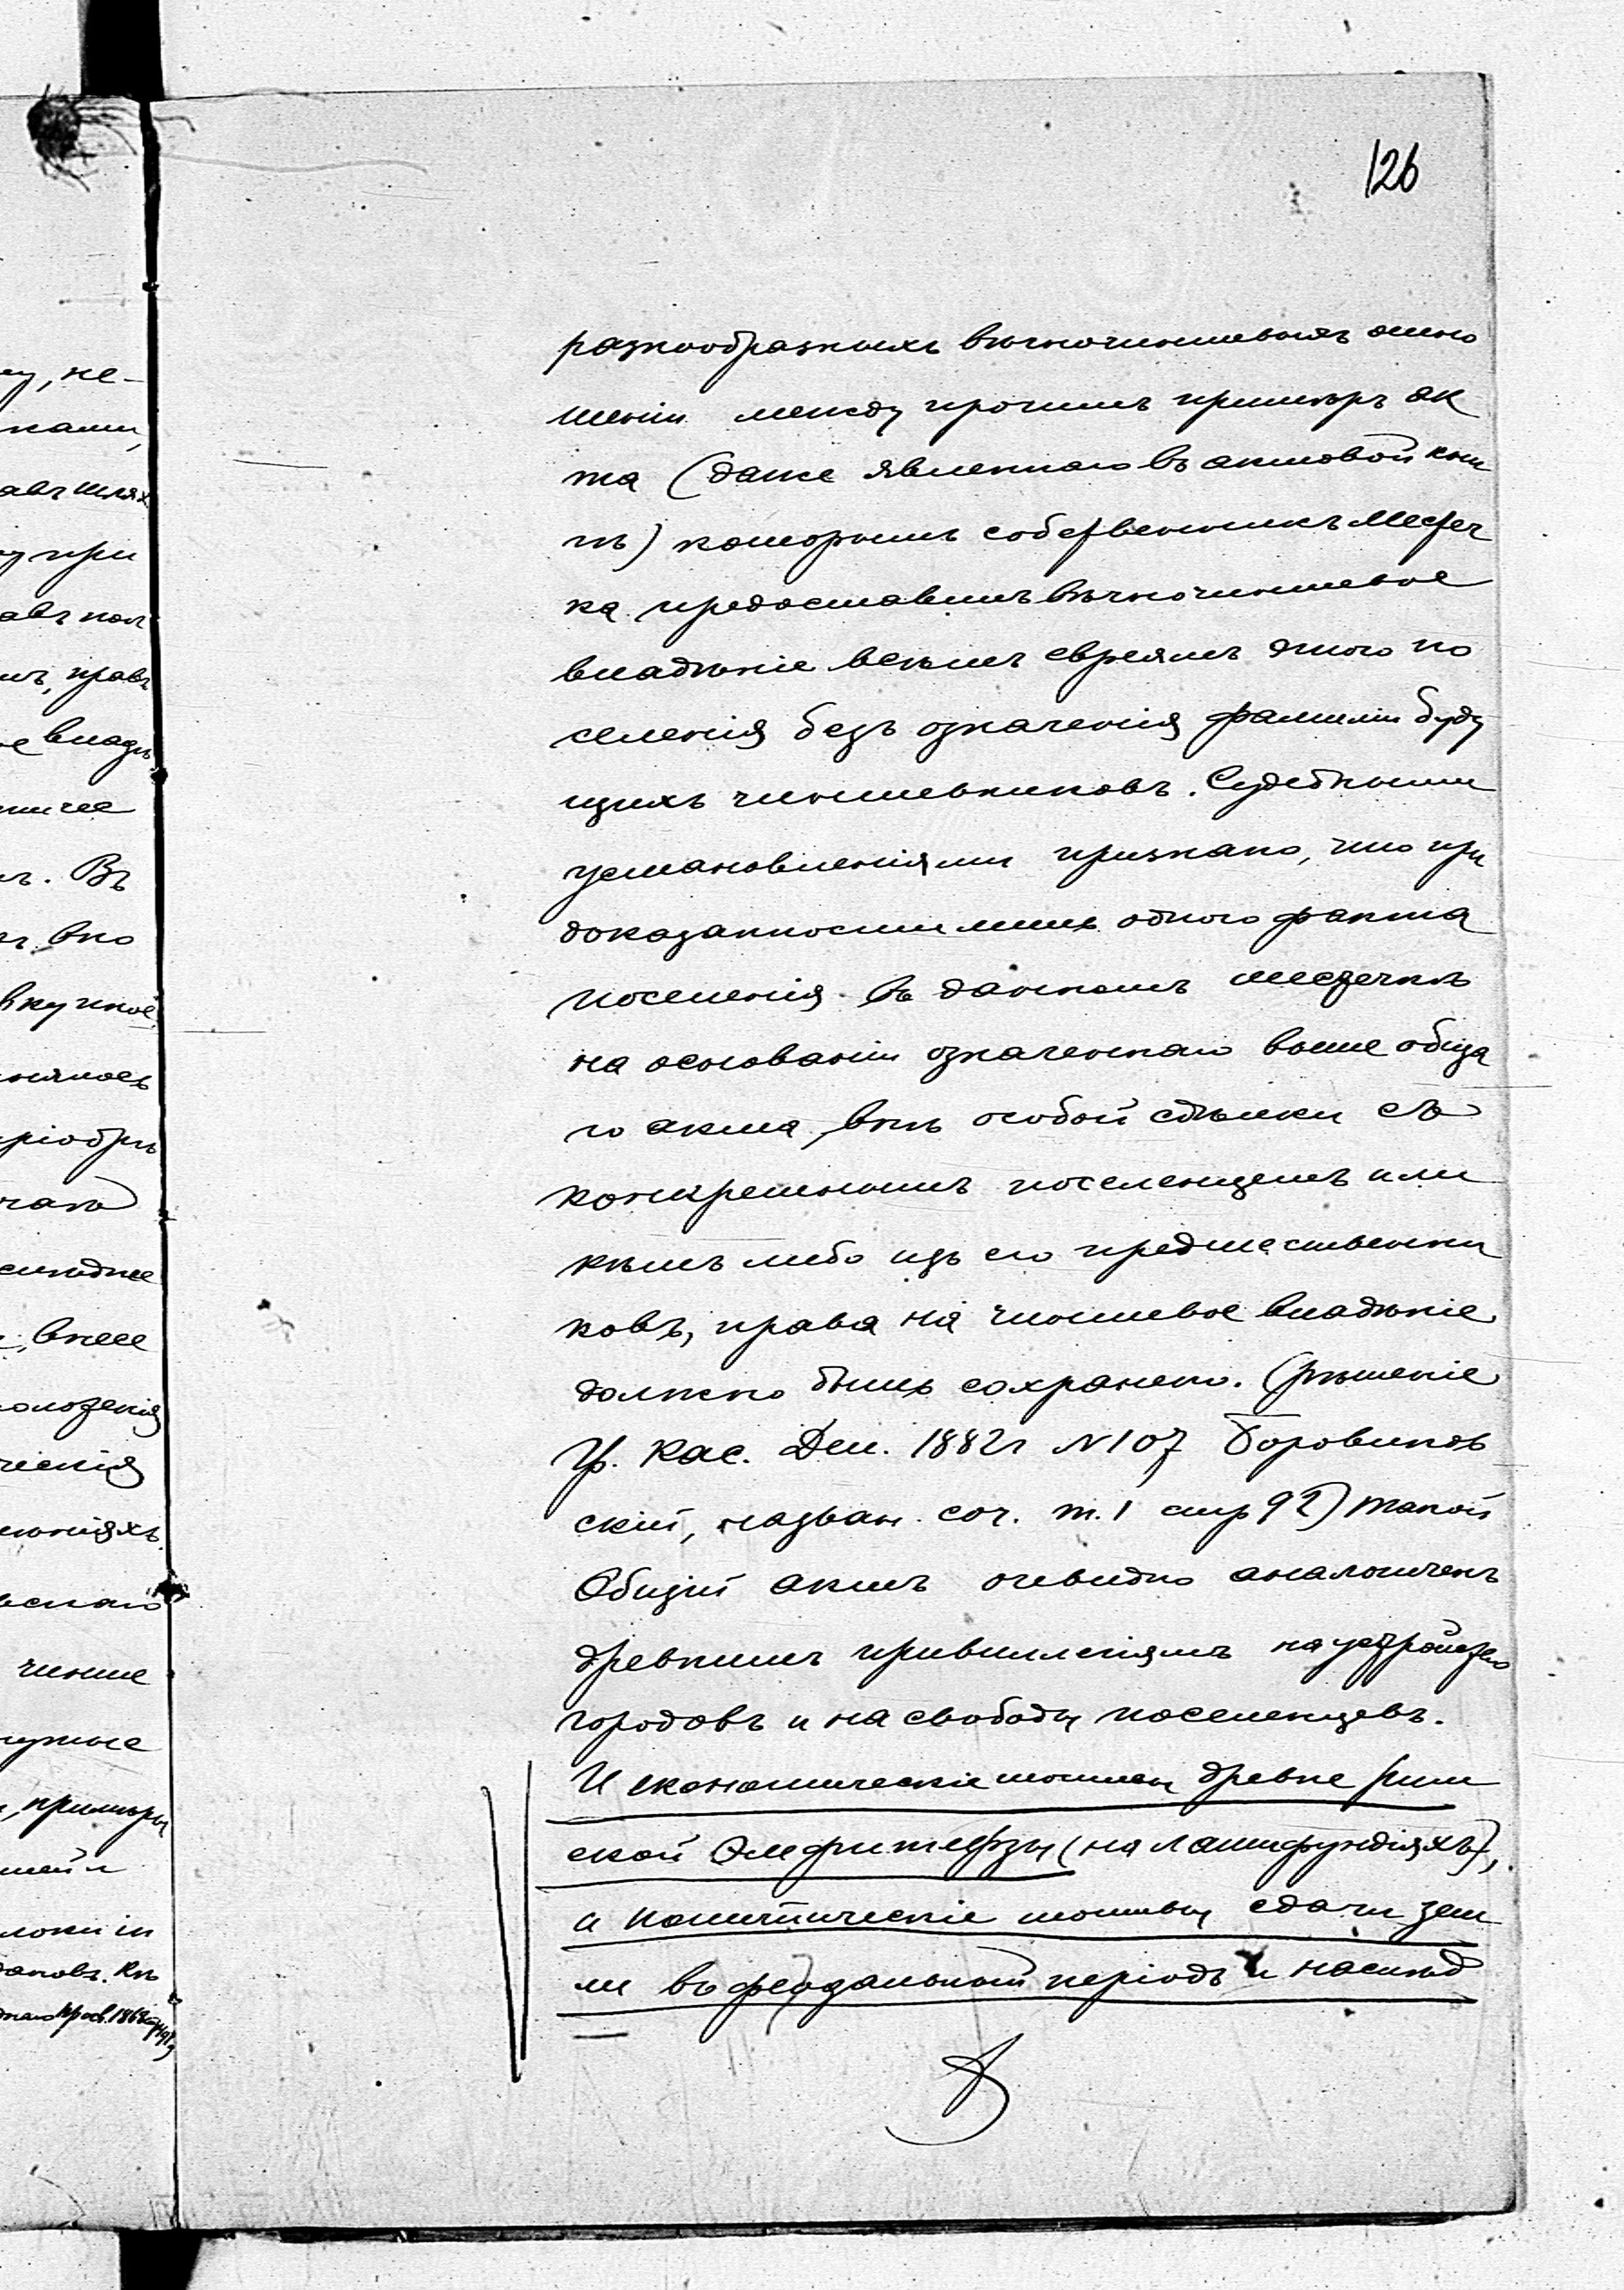 126
разнообразныхъ вѣчночиншевыхъ отно
шеній между прочимъ примѣръ ак
та (даже явленнаго въ актовой кни
гѣ) которымъ собственникъ местеч
ка предоставилъ вѣчно чиншевое
владѣніе всѣмъ евреямъ этого по
селенія безъ означенія фамиліи буду
щихъ чиншевиковъ. Судебными
установленіями признано, что при
доказанности лишь одного факта
поселенія въ данномъ местечкѣ
на основаніи означеннаго выше обща
го акта, внѣ особой сдѣлки съ
конкретнымъ поселенцемъ или
кѣмъ либо изъ его предшественни
ковъ, права на чиншевое владѣніе
должно быть сохранено. (рѣшеніе
Гр. Кас. Деп. 1882г N107 Боровиков
скій, назван. соч. т. 1 стр 92) такой
Общій актъ очевидно аналогиченъ
древнимъ привиллегіямъ на устройство
городовъ и на свободу поселенцевъ.
И економическіе мотивы древне рим
ской Эмфитевзы (на латифундіяхъ),
и политическіе мотивы сдачи зем
ли въ феодальный періодъ и наслѣд